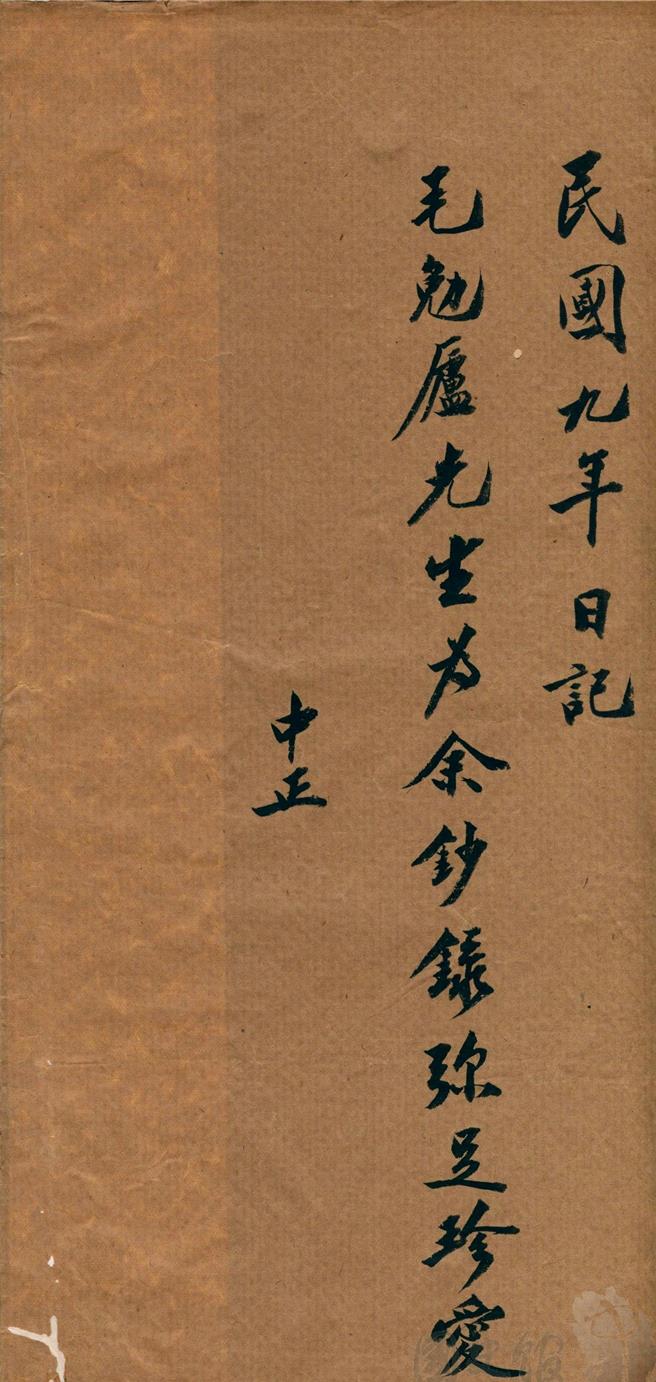 民國九年日記
毛勉廬先生為余鈔錄弥足珍愛
中正